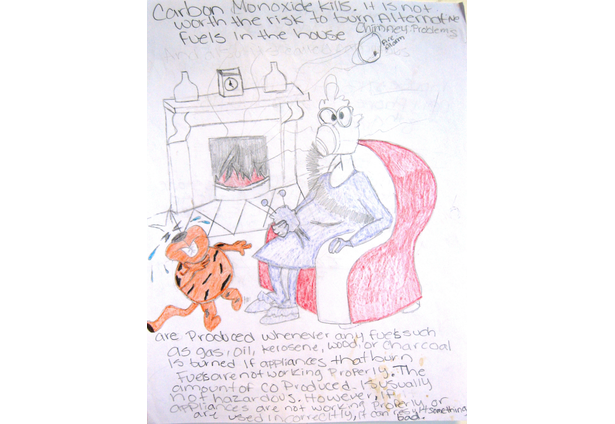 Carbon Monoxide Kills. it is not
worth the risk to burn Alternative
fuels in the house Chimney Problems
Fire
Alarm
are Produced whenever any fuels such
as gas, oil, kerosene, wood, or charcoal
is turned If appliances that burn
fuels are not working Properly. The
amount of CO Produced Is usually
not hazardous. However, if
appliances are not working Properly or
are used incorrectly, it can result something
bad.